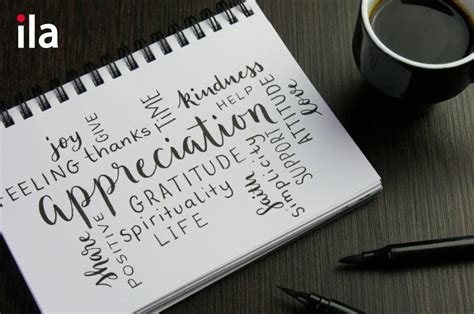 ila
joy
GIVE
thanks
TIME
kindness
HELP
FEELING
appreciation
GRATITUDE
Spirituality
LIFE
share
POSITIVE
faith
simplicity
SUPPORT
ATTITUDE
love